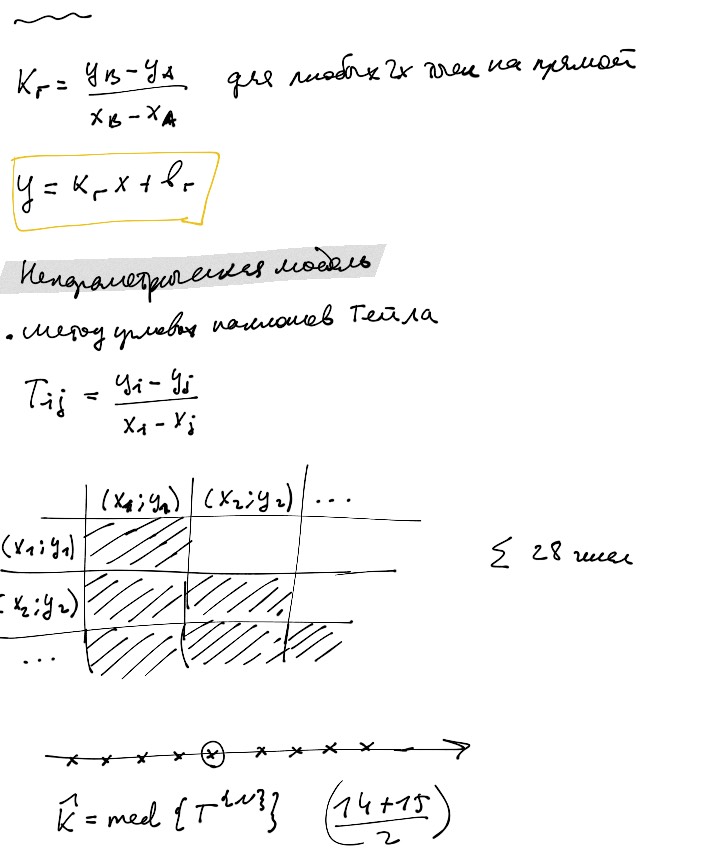 Kг = (yB − yA) / (xB − xA) для любых 2х точек на прямой
y = Kг x + bг
Непараметрическая модель
• метод угловых наклонов Тейла
Tij = (yi − yj) / (xi − xj)
(x1; y1) (x2; y2) ...
(x1; y1)
(x2; y2)
...
Σ 28 чисел
K̂ = med {T^{N}} ((14+15) / 2)